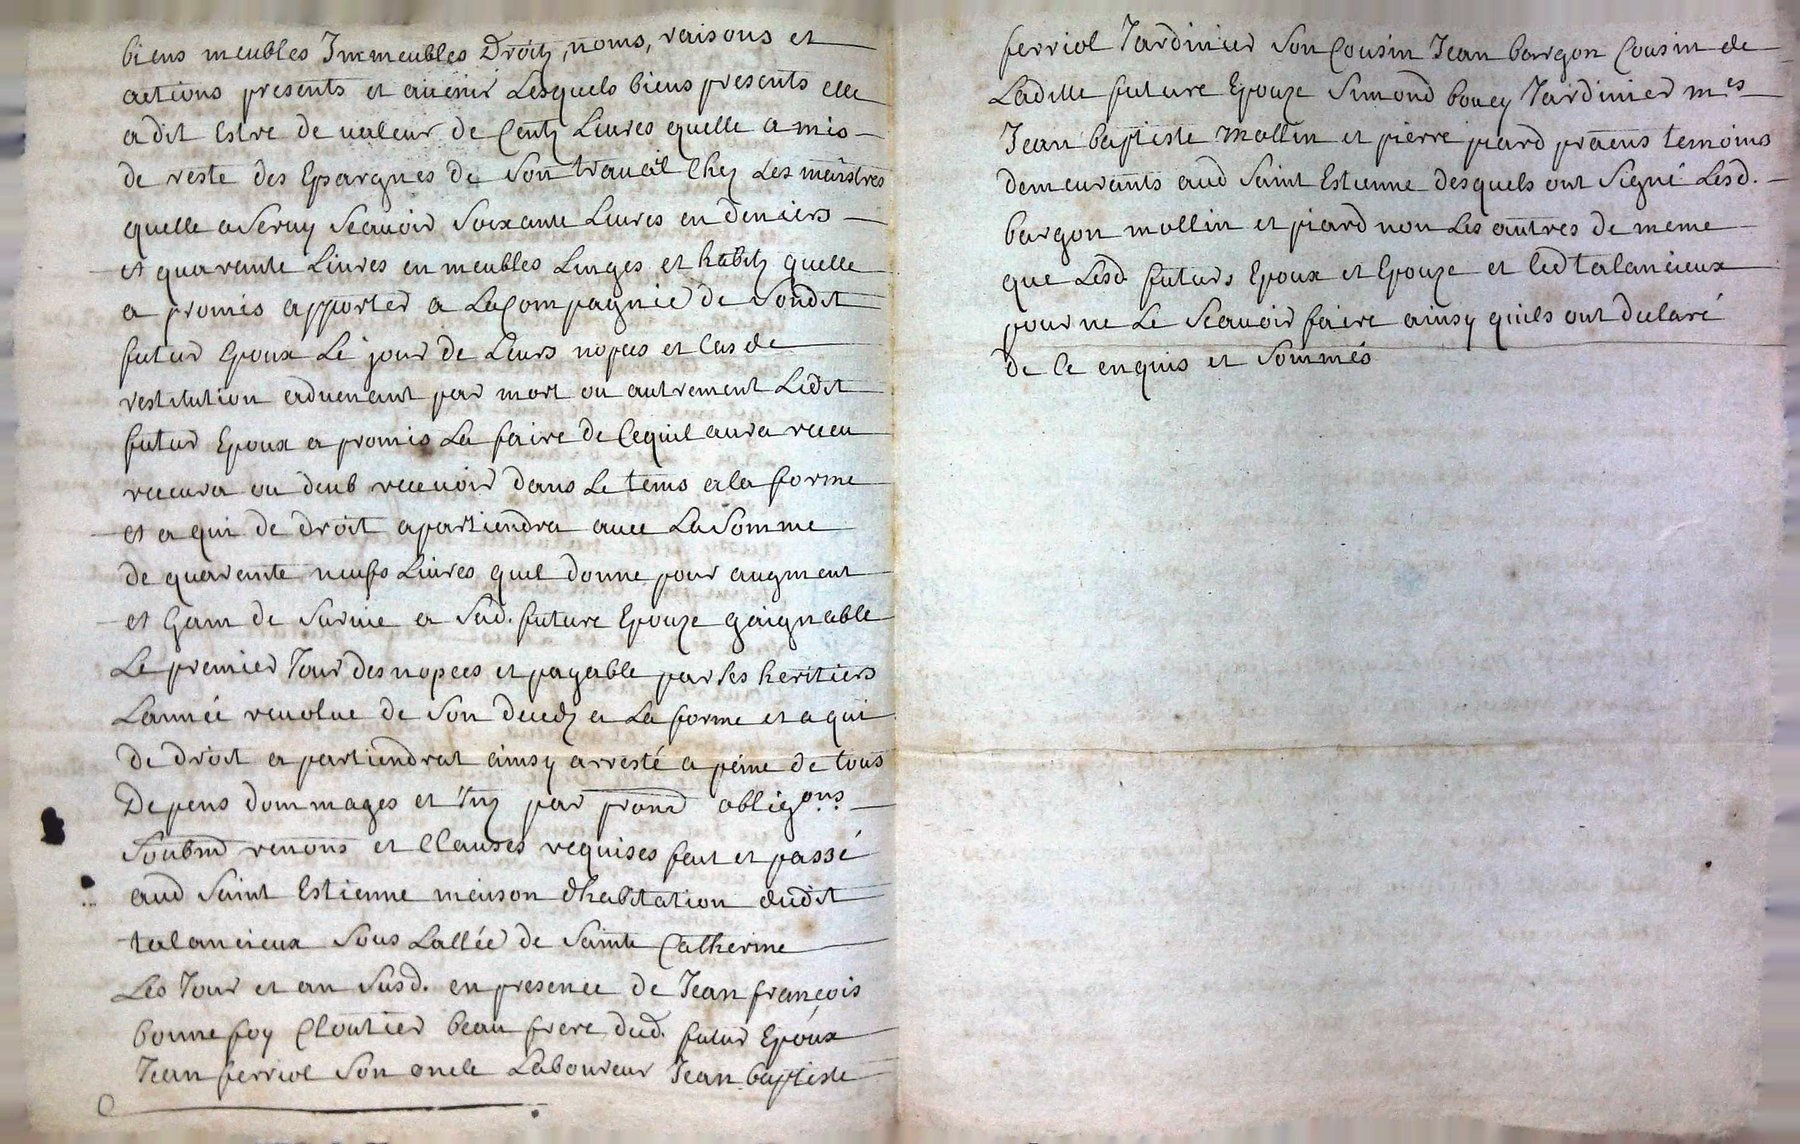 biens meubles Immeubles Droitz, noms, raisons et
actions presents et auenir Lesquels biens presents elle
a dit Estre de ualeur de Centz Liures quelle a mis
de reste des Epargnes de Son trauail Chez Les maistres
quelle a Seruy Scauoir Soixante Liures en deniers
et quarente Liures en meubles Linges et habitz quelle
a promis apporter a La Compagnie de Soudit
futur Epoux Le jour de Leurs nopces et Cas de
restitution aduenant par mort ou autrement Ledit
futur Epoux a promis La faire de Cequil aura receu
receura ou deub receuoir dans Le tems a la forme
et a qui de droit apartiendra auec La Somme
de quarente neufs Liures quil donne pour augment
et Gain de Suruie a Sad. future Epouze gaignable
Le premier Jour des nopces et payable par Ses heritiers
Lannée reuolue de Son decedz a La forme et a qui
de droit apartiendrat ainsy arresté a peine de tous
Depens dommages et Intz par promd obligons
Soubmd renons et Clauzes requises fait et passé
aud Saint Estienne maison dhabitation dudit
talancieux Sous Lallée de Sainte Catherine
Les Jour et an Susd. en presence de Jean françois
bonnefoy Cloutier beau frere dud. futur Epoux
Jean ferriol Son oncle Laboureur Jean baptiste
ferriol Jardinier Son Cousin Jean bargon Cousin de
Ladite future Epouze Simond bouey Jardinier mes
Jean baptiste mollin et pierre piard præns temoins
demeurants aud Saint Estienne desquels ont Signé Lesd.
bargon mollin et piard non Les autres de meme
que Lesd futurs Epoux et Epouze et led talancieux
pour ne Le Scauoir faire ainsy quils ont declaré
de Ce enquis et Sommés